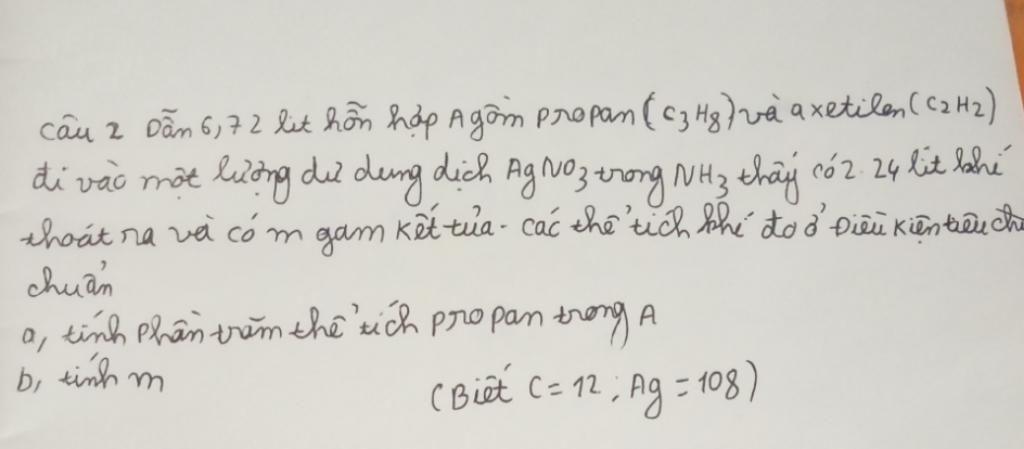 Câu 2 Dẫn 6,72 lit hỗn hợp A gồm propan (C3H8) và axetilen (C2H2)
đi vào một lượng dư dung dịch AgNO3 trong NH3 thấy có 2.24 lít khí
thoát ra và có m gam kết tủa. các thể tích khí đo ở Điều kiện tiêu ch
chuẩn
a, tính phần trăm thể tích propan trong A
b, tính m
(Biết C = 12 ; Ag = 108)